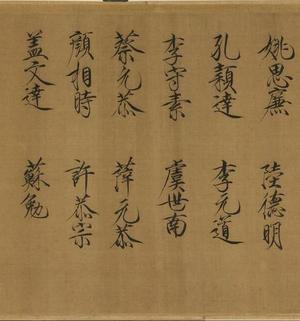 姚思廉 陸德明
孔穎達 李元道
李守素 虞世南
蔡元恭 薛元恭
顏相時 許恭宗
盖文達 蘇勉